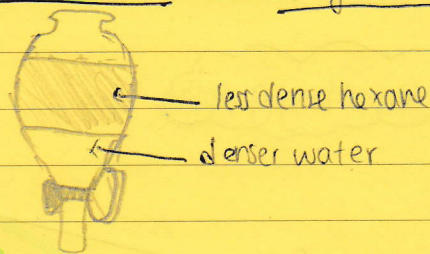 less dense hexane
denser water